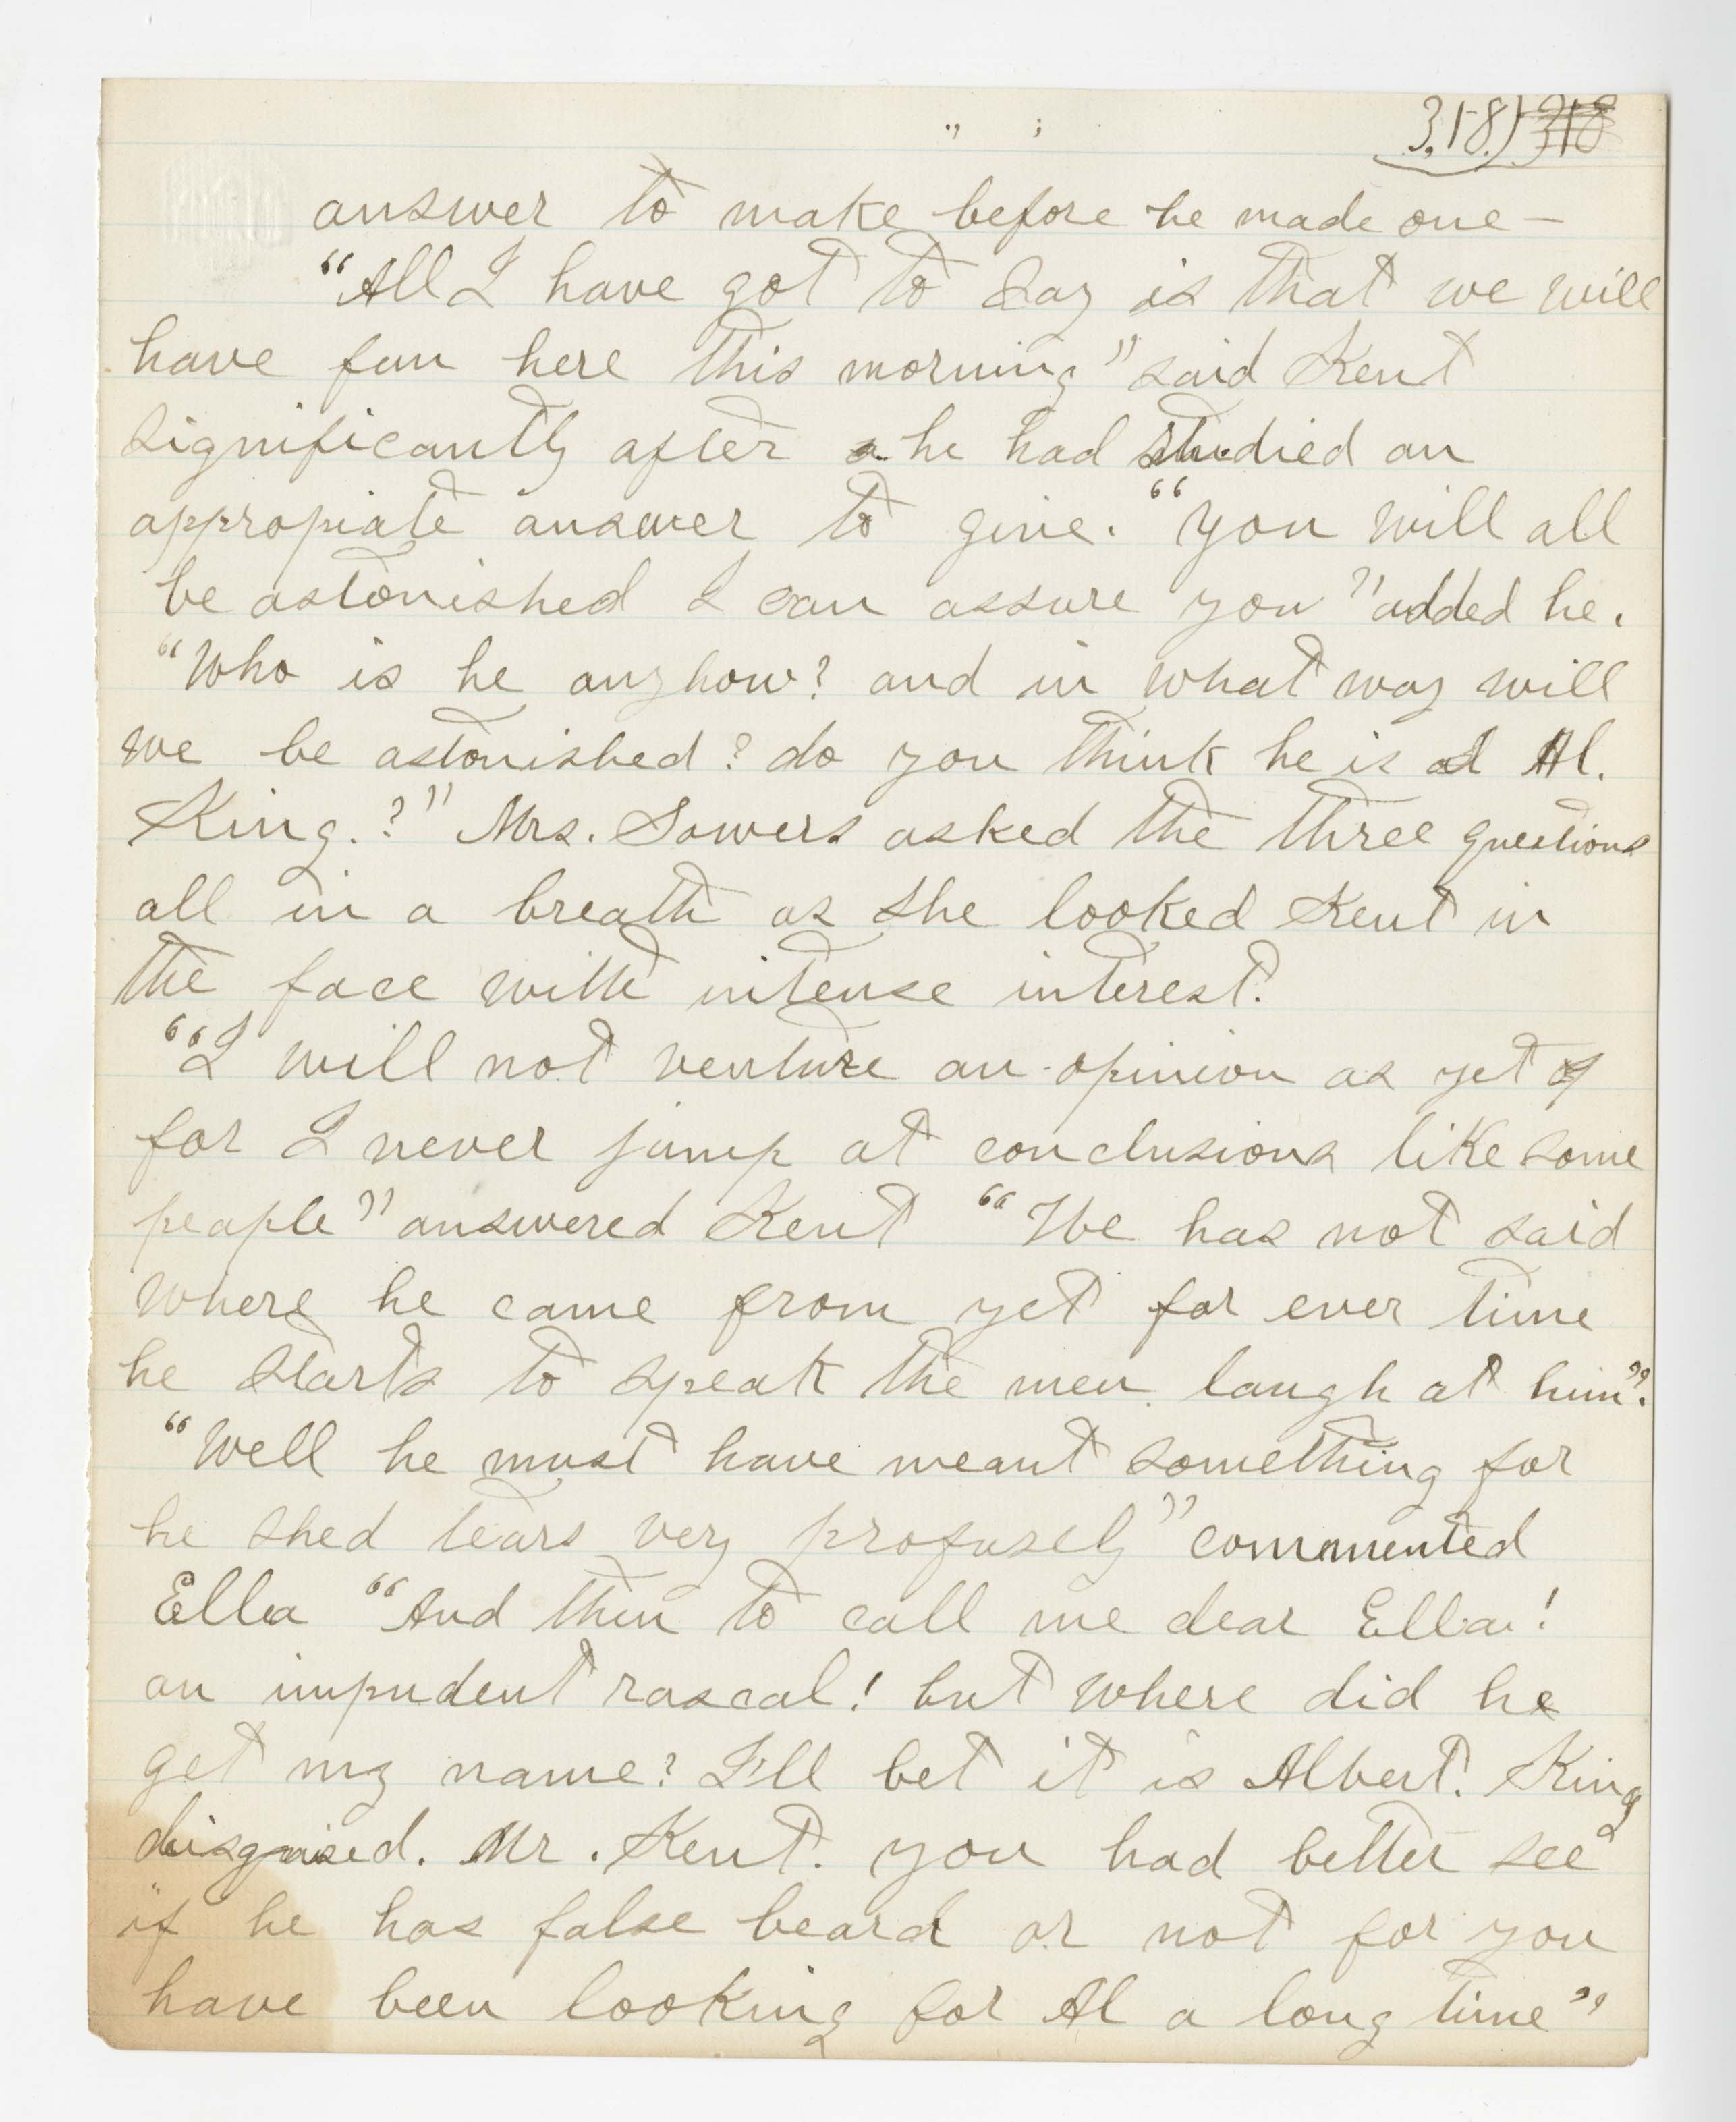 318) 318
answer to make before he made one —
“All I have got to say is that we will
have fun here this morning” said Kent
significantly after a he had studied an
appropiate answer to give. “you will all
be astonished I can assure you” added he.
“Who is he anyhow? and in what way will
we be astonished? do you think he is Al.
King.?” Mrs. Sowers asked the three questions
all in a breath as she looked Kent in
the face with intense interest.
“I will not venture an opinion as yet
for I never jump at conclusions like some
people” answered Kent “He has not said
where he came from yet for ever time
he starts to speak the men laugh at him”.
“Well he must have meant something for
he shed tears very profusely” commented
Ella “And then to call me dear Ella!
an impudent rascal! but where did he
get my name? I'll bet it is Albert. King
disguised. Mr. Kent. you had better see
if he has false beard or not for you
have been looking for Al a long time”